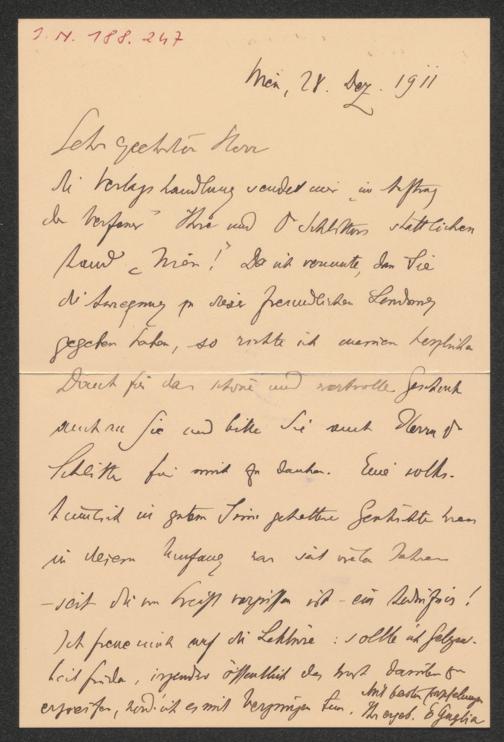 J. N. 188.247
Wien, 28. Dez. 1911
Sehr geehrter Herr
die Verlagshandlung sendet mir „im Auftrag
der Verfasser" Ihren und Dr Schlitters stattlichen
Band „Wien!" Da ich vermute, dass Sie
die Anregung zu dieser freundlichen Sendung
gegeben haben, so richte ich meinen herzlichen
Dank für das schöne und wertvolle Geschenk
auch an Sie und bitte Sie auch Herrn Dr
Schlitter für mich zu danken. Eine volks-
tümlich in gutem Sinn gehaltene Geschichte Wiens
in diesem Umfang war seit vielen Jahren
– seit die von Weiß vergriffen ist – ein Bedürfnis!
Ich freue mich auf die Lektüre: sollte ich Gelegen-
heit finden, irgendwo öffentlich das Wort darüber zu
ergreifen, werde ich es mit Vergnügen tun.
Mit besten Empfehlungen
Ihr ergeb. E Guglia